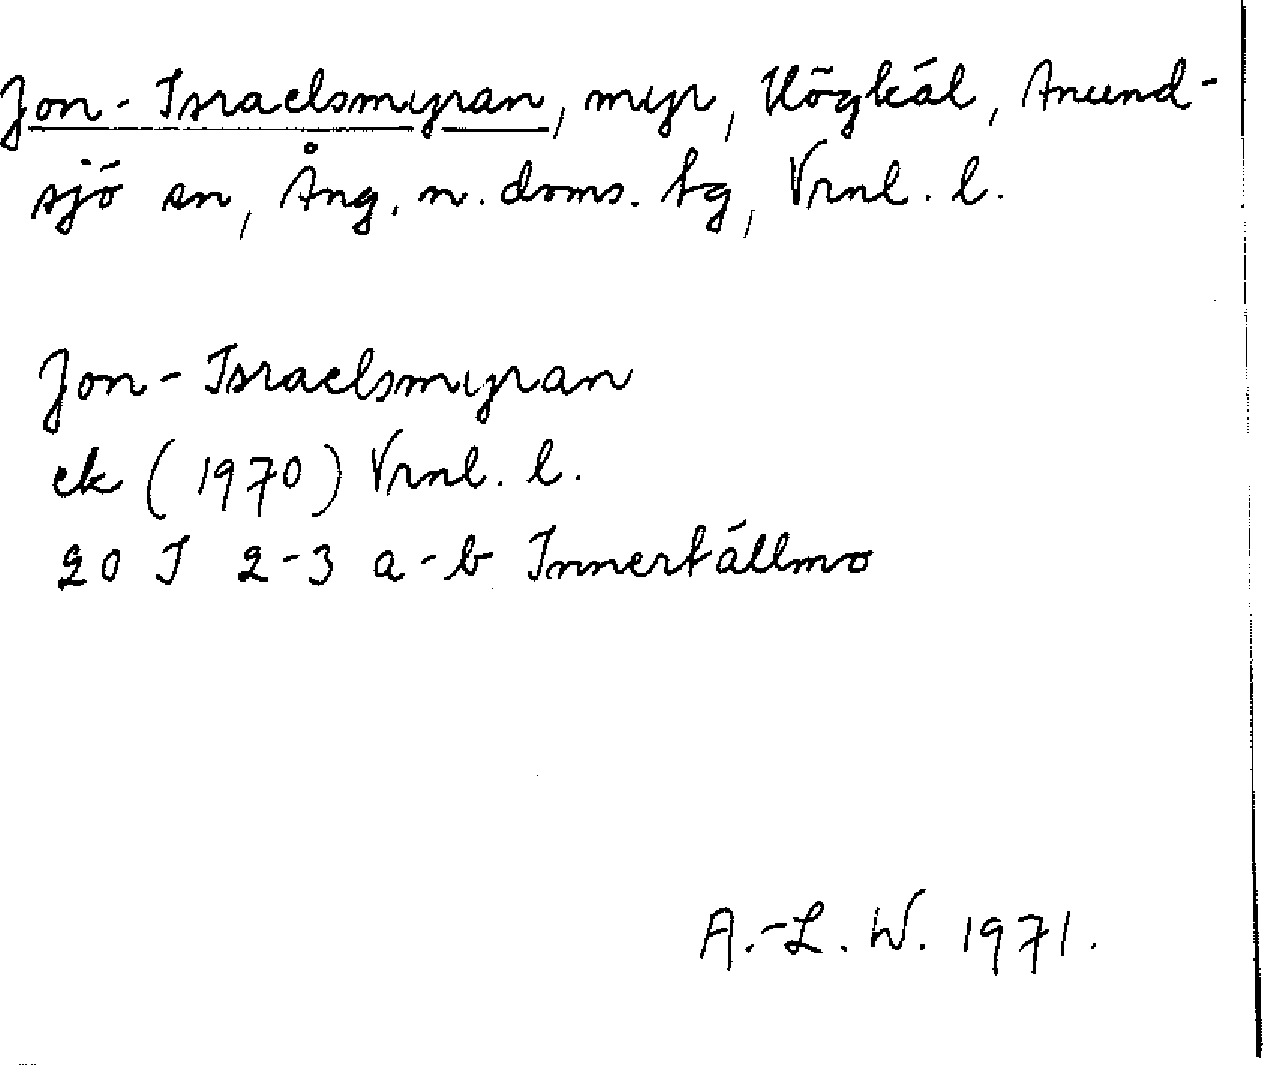 Jon-Israelsmyran, myr, Högkål, Anund-
sjö sn, Ång. n. doms. tg, Vrnl. l.
Jon-Israelsmyran
ek (1970) Vrnl. l.
20 I 2-3 a-b Innertällmo
A.-L. W. 1971.